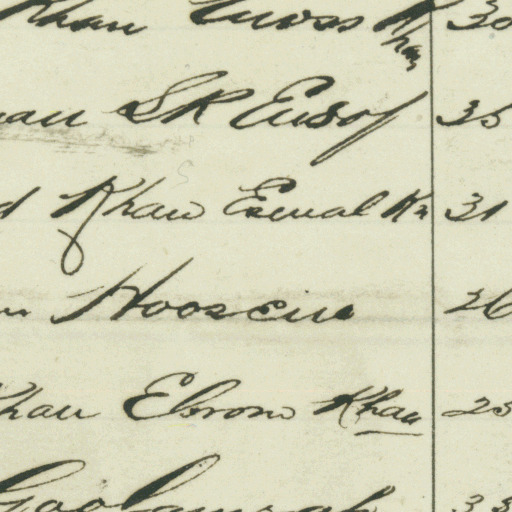 Khan Emoss Khan 30
au SK Eusof 35
d Khan Esmal Kn 31
n Hoosein 26
Khan Ebrom Khan 25
Goolamsah 33